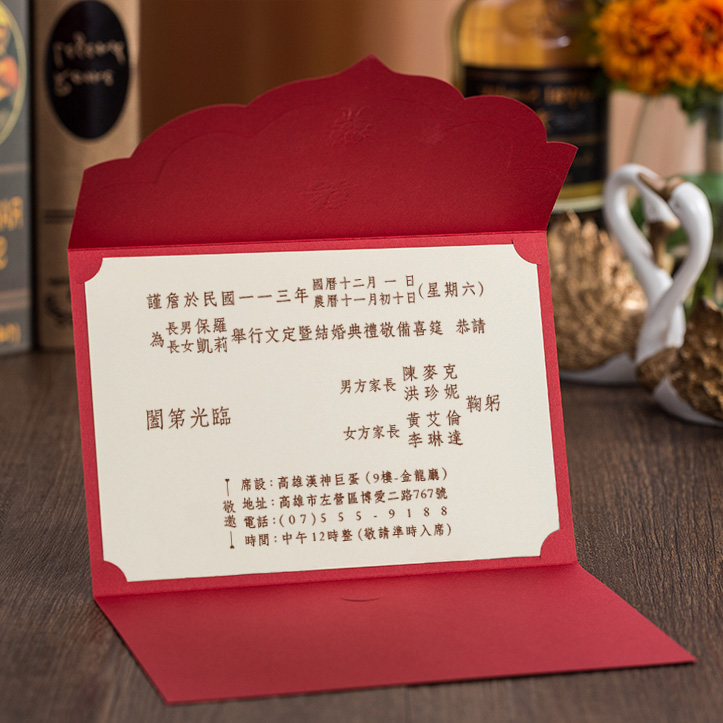 謹詹於民國一一三年國曆十二月一日(星期六)
農曆十一月初十日
為長男保羅舉行文定暨結婚典禮敬備喜筵 恭請
長女凱莉
闔第光臨
男方家長 陳麥克
洪珍妮
女方家長 黃艾倫 鞠躬
李琳達
敬邀
席設：高雄漢神巨蛋 (9樓-金龍廳)
地址：高雄市左營區博愛二路767號
電話：(07)555-9188
時間：中午12時整 (敬請準時入席)